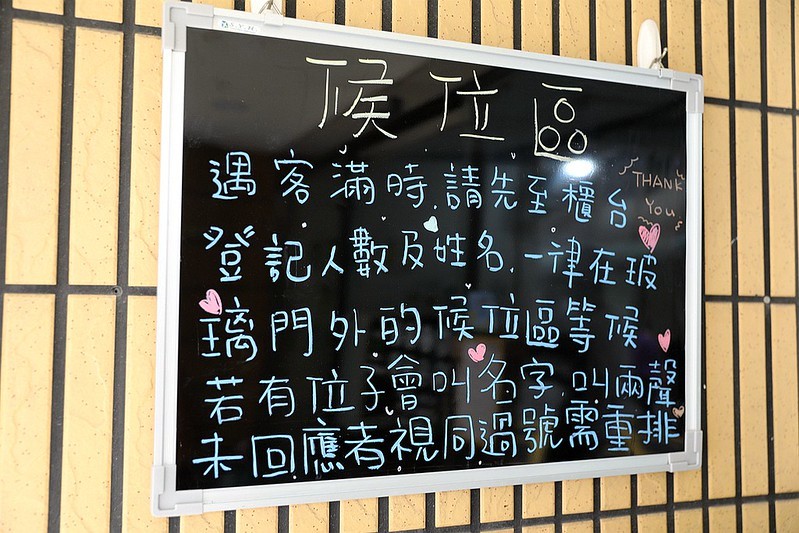 候位區
遇客滿時,請先至櫃台
THANK
YOU
登記人數及姓名,一律在玻
璃門外的候位區等候
若有位子會叫名字,叫兩聲
未回應者視同過號需重排